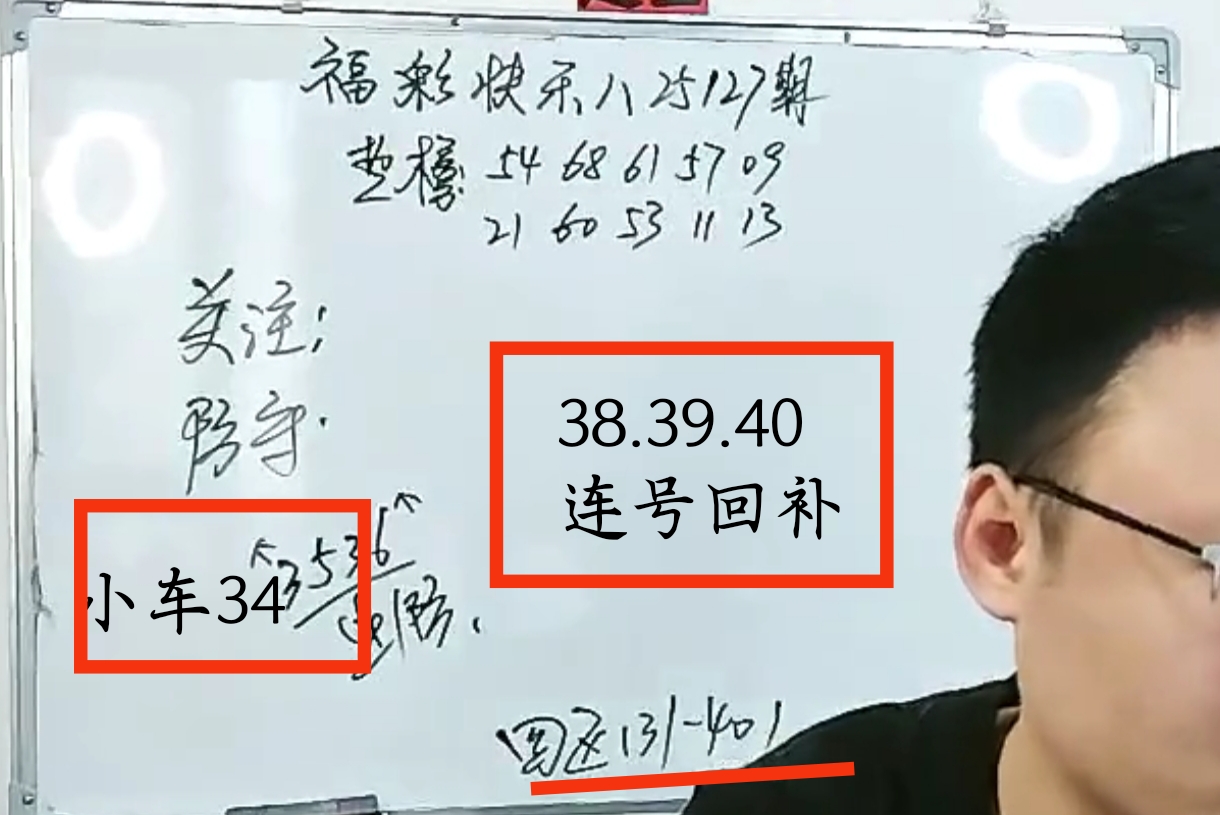 福彩快乐八25127期
垫榜: 54 68 61 57 09
21 60 53 11 13
关注:
防守.
38.39.40
连号回补
小车34
3536
重防.
四区(31-40)